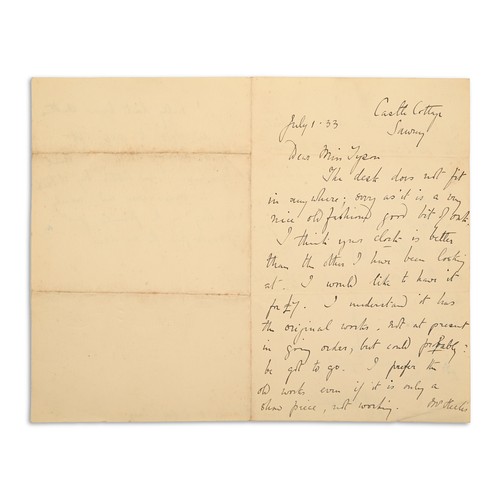 Castle Cottage
Sawrey
July 1. 33
Dear Miss Tyson
The desk does not fit
in anywhere; sorry as it is a very
nice old fashioned good bit of oak.
I think your clock is better
than the other I have been looking
at. I would like to have it
for £7. I understand it has
the original works. not at present
in going order, but could probably
be got to go. I prefer the
old works even if it is only a
show piece, not working.
Heelis